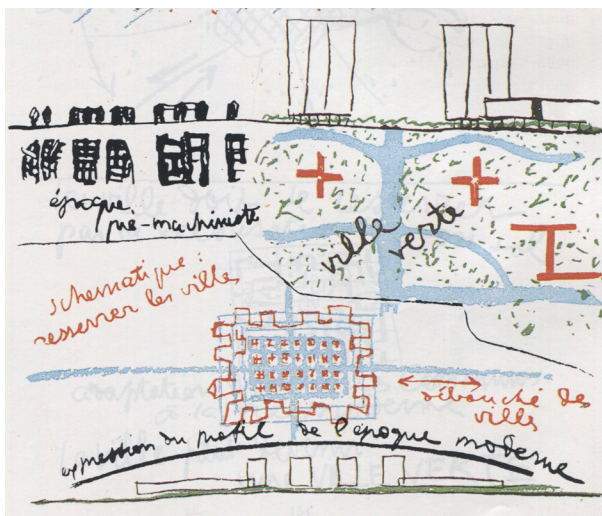 époque
pré-machiniste
ville
verte
schématique :
resserrer les villes
débauché des
villes
expression du profil de l'époque moderne